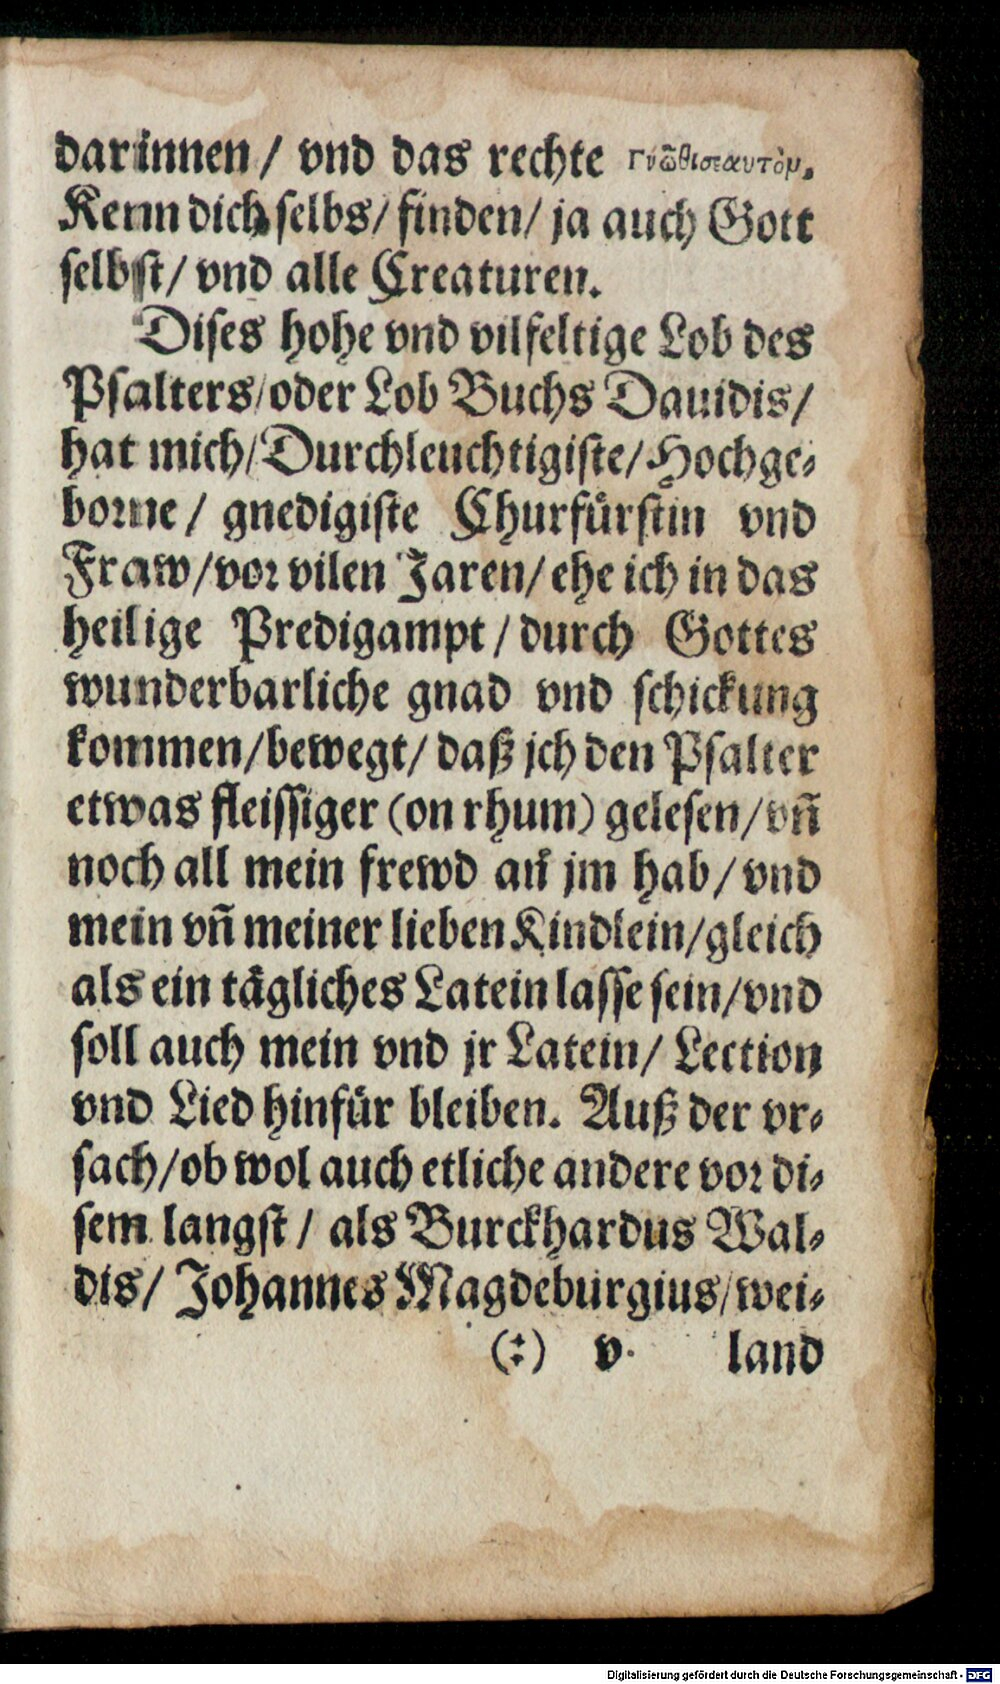 darinnen / vnd das rechte Γνῶθισεαυτὸν.
Kenn dich selbs / finden / ja auch Gott
selbst / vnd alle Creaturen.
Dises hohe vnd vilfeltige Lob des
Psalters / oder Lob Buchs Dauidis /
hat mich / Durchleuchtigiste / Hochge-
borne / gnedigiste Churfürstin vnd
Fraw / vor vilen Jaren / ehe ich in das
heilige Predigampt / durch Gottes
wunderbarliche gnad vnd schickung
kommen / bewegt / daß jch den Psalter
etwas fleissiger (on rhum) gelesen / vñ
noch all mein frewd an jm hab / vnd
mein vñ meiner lieben Kindlein / gleich
als ein tägliches Latein lasse sein / vnd
soll auch mein vnd jr Latein / Lection
vnd Lied hinfür bleiben. Auß der vr-
sach / ob wol auch etliche andere vor di-
sem langst / als Burckhardus Wal-
dis / Johannes Magdeburgius / wei-
(:) v land
Digitalisierung gefördert durch die Deutsche Forschungsgemeinschaft - DFG